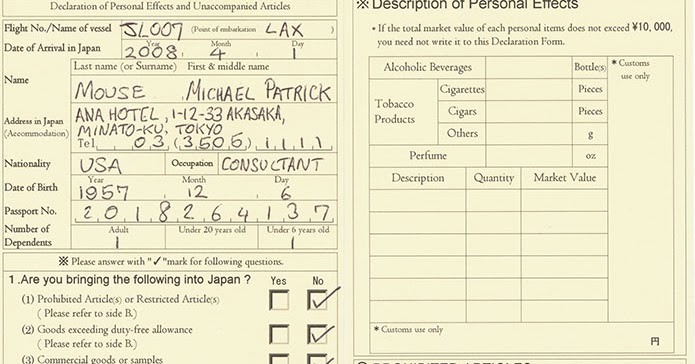 Declaration of Personal Effects and Unaccompanied Articles
Flight No./Name of vessel JL007 (Point of embarkation LAX )
Year Month Day
Date of Arrival in Japan 2008 4 1
Last name (or Surname) First & middle name
Name MOUSE MICHAEL PATRICK
Address in Japan (Accommodation) ANA HOTEL, 1-12-33 AKASAKA,
MINATO-KU, TOKYO
Tel 03 (3505) 1111
Nationality USA Occupation CONSULTANT
Year Month Day
Date of Birth 1957 12 6
Passport No. 2018264137
Number of Dependents Adult Under 20 years old Under 6 years old
1 1
※ Please answer with "✓"mark for following questions.
1.Are you bringing the following into Japan ? Yes No
(1) Prohibited Article(s) or Restricted Article(s) ✓
( Please refer to side B.)
(2) Goods exceeding duty-free allowance ✓
( Please refer to side B.)
(3) Commercial goods or samples
※ Description of Personal Effects
* If the total market value of each personal items does not exceed ¥10,000,
you need not write it to this Declaration Form.
Alcoholic Beverages Bottle(s)
* Customs
use only
Tobacco Products
Cigarettes Pieces
Cigars Pieces
Others g
Perfume oz
Description Quantity Market Value
* Customs use only
円